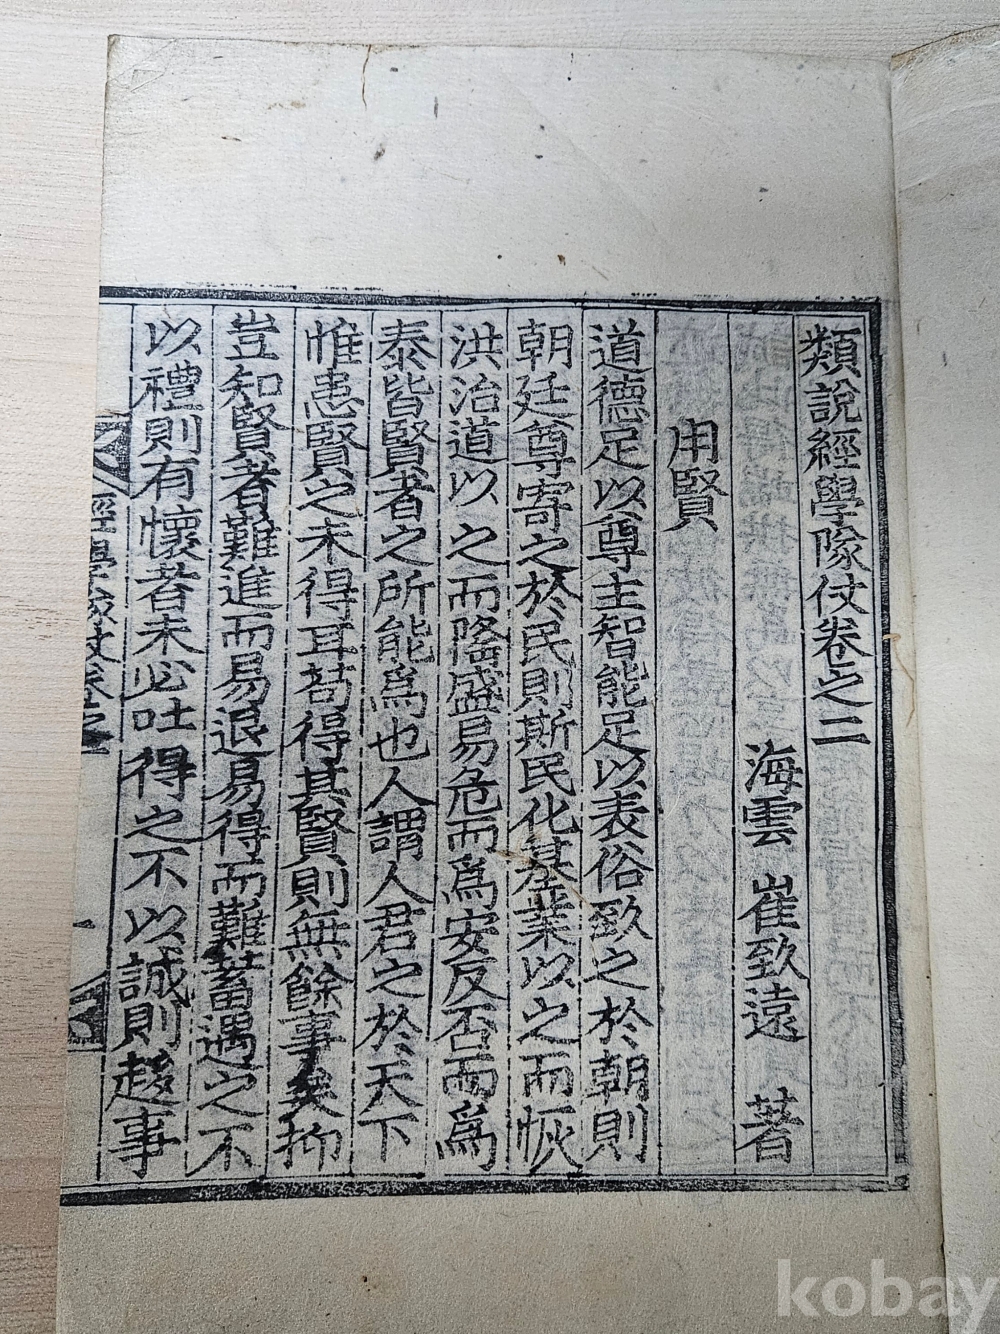 類說經學隊仗卷之二
海雲 崔致遠 著
用賢
道德足以尊主智能足以表俗致之於朝則
朝廷尊寄之於民則斯民化基業以之而恢
洪治道以之而隆盛易危而爲安反否而爲
泰皆賢者之所能爲也人謂人君之於天下
惟患賢之未得耳苟得其賢則無餘事矣抑
豈知賢者難進而易退易得而難蓄遇之不
以禮則有懷者未必吐得之不以誠則趍事
經學隊仗卷之
kobay